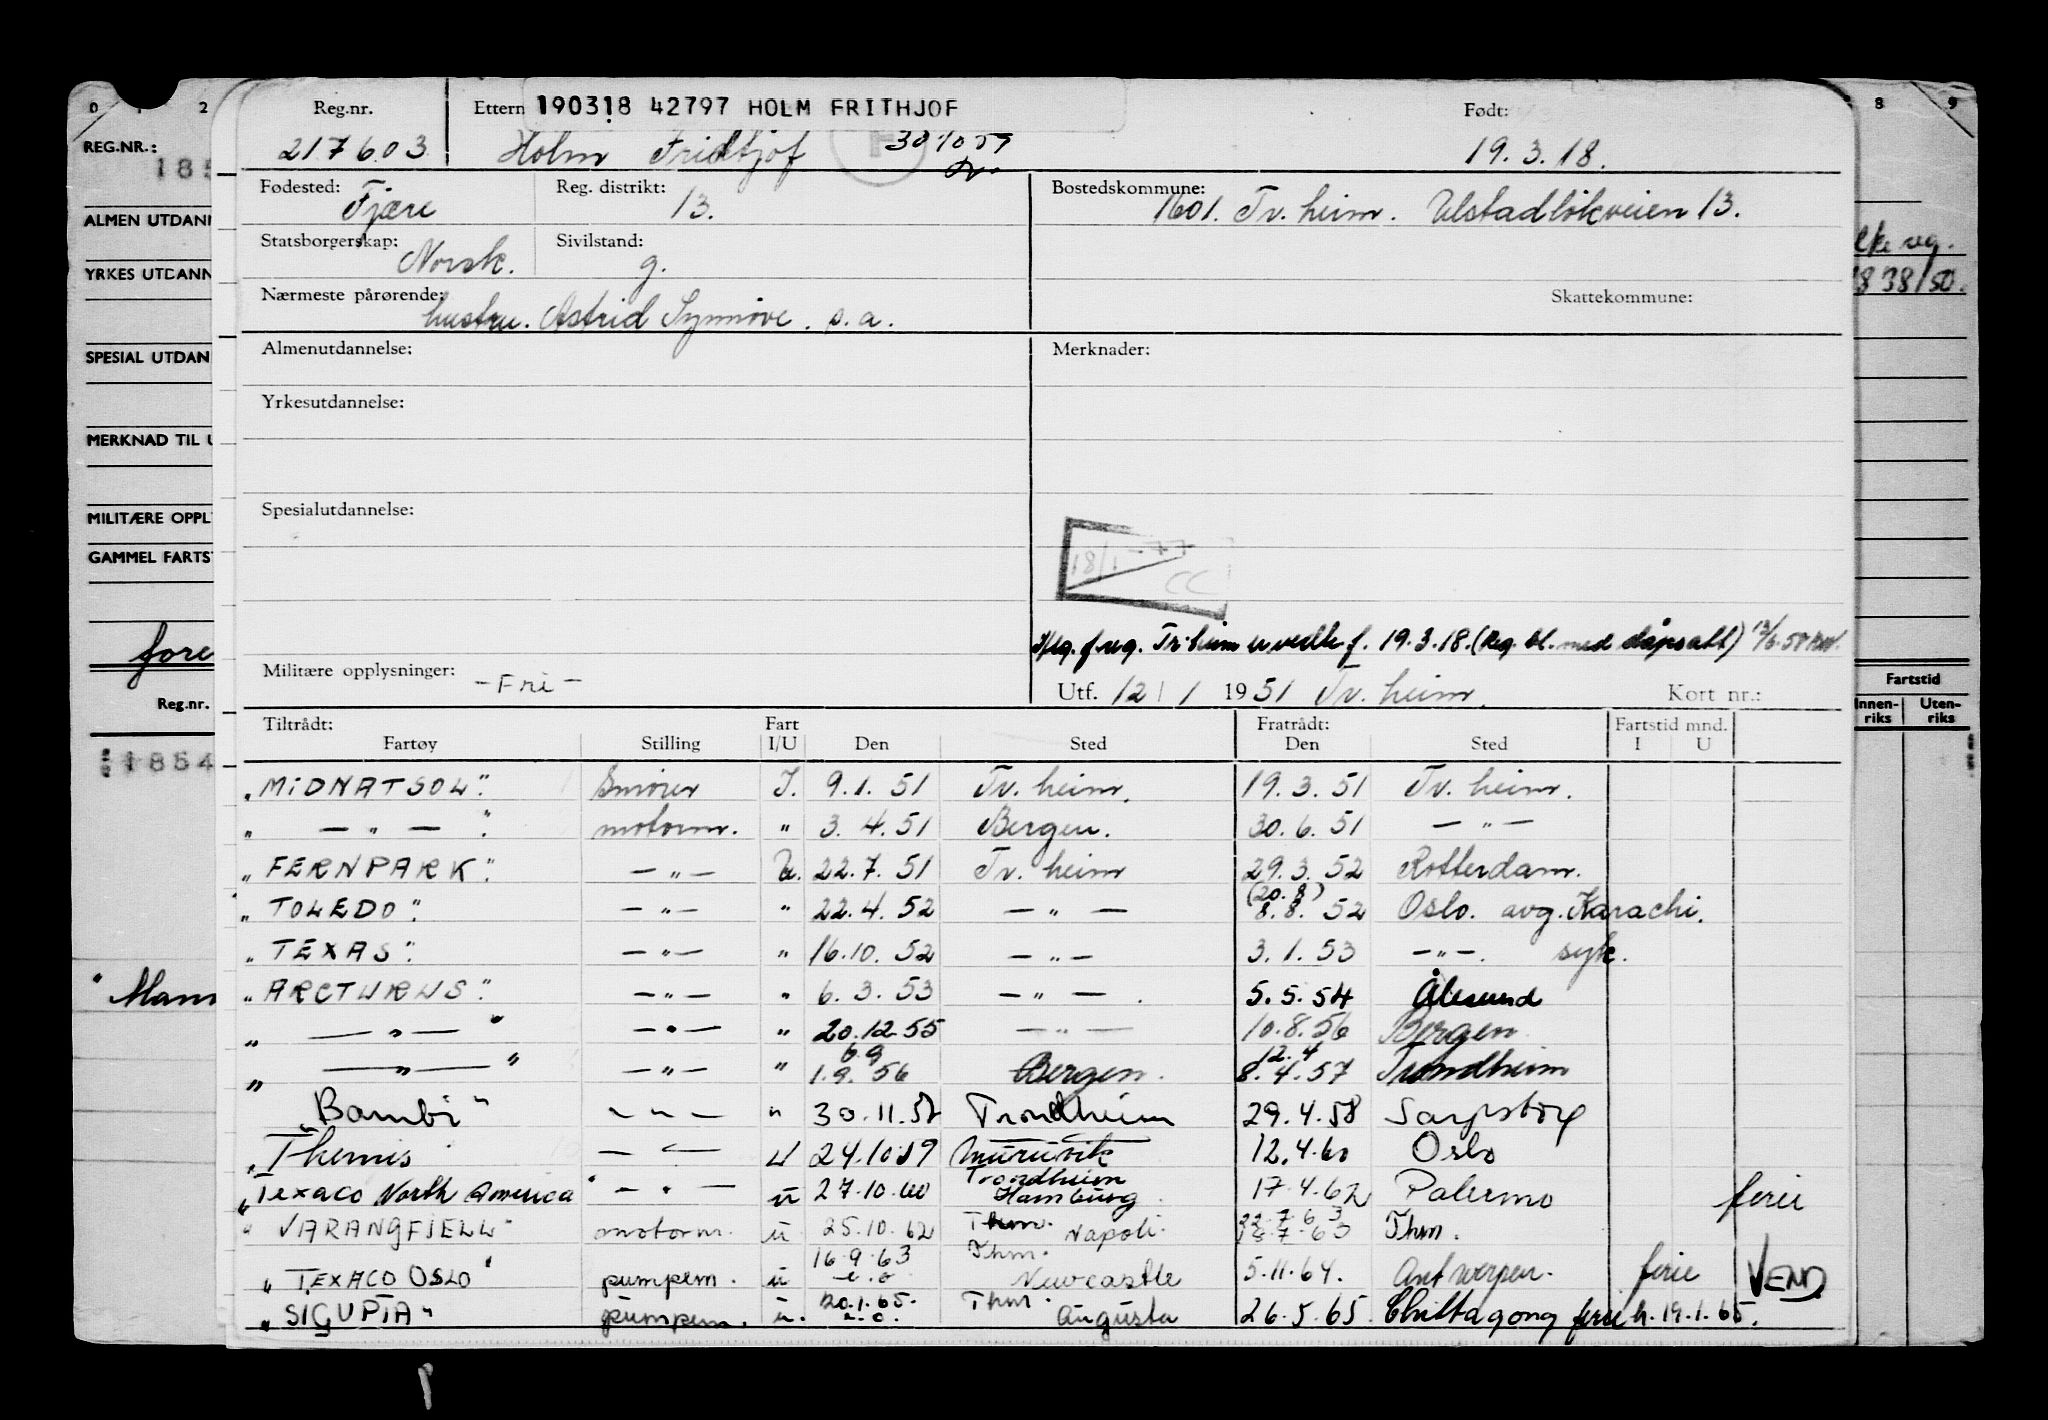 0 1 2
8 9
REG.NR.:
185
ALMEN UTDANN
YRKES UTDANN
SPESIAL UTDAN
MERKNAD TIL U
MILITÆRE OPPL
GAMMEL FARTS
fore
Reg.nr.
1854
" Mann
38/50.
Fartstid
Innen-riks Uten-riks
Reg.nr. Ettern 190318 42797 HOLM FRITHJOF Født:
217603 Holm Fridtjof F 30/10 59 19.3.18.
Fødested: Fjære Reg. distrikt: 13. Bostedskommune: 1601. Tr. heim. Ulstadløkveien 13.
Statsborgerskap: Norsk. Sivilstand: g.
Nærmeste pårørende: hustru. Astrid Synnøve. s.a. Skattekommune:
Almenutdannelse: Merknader:
Yrkesutdannelse:
Spesialutdannelse:
18/1-77
CC
Iflg. f.reg. Tr.heim er vedk. f. 19.3.18. (Reg. bl. med dåpsatt)
Militære opplysninger: -Fri- Utf. 12/1 1951 Tr. heim. Kort nr.:
Tiltrådt: Fart Fratrådt: Fartstid mnd.
Fartøy Stilling I/U Den Sted Den Sted I U
"MIDNATSOL" Smører I. 9.1.51 Tr. heim. 19.3.51 Tr. heim.
" — " — " motorm. " 3.4.51 Bergen. 30.6.51 — " —
"FERNPARK" — " — U. 22.7.51 Tr. heim 29.3.52 Rotterdam.
"TOLEDO" — " — " 22.4.52 — " — (20.8) 8.8.52 Oslo. avg. Karachi.
"TEXAS" — " — " 16.10.52 — " — 3.1.53 — " —. syk.
"ARCTURUS" — " — " 6.3.53 — " —. 5.5.54 Ålesund
" — " — " — " — " 20.12.55 — " — 10.8.56 Bergen
" — " — " — " — " 6.9 1.9.56 Bergen. 12.4 8.4.57 Trondheim
"Bambi" — " — " 30.11.57 Trondheim 29.4.58 Sarpsborg
"Themis — " — U 24.10.59 Muruvik 12.4.60 Oslo
"Texaco North America" — " — ü 27.10.60 Trondheim Hamburg. 17.4.62 Palermo ferie
"VARANGFJELL" motorm. ü 25.10.62 Thm. Napoli. 22.7.63 18.7.63 Thm.
"TEXACO OSLO" pumpem. ü 16.9.63 e.o Thm. Newcastle 5.11.64. Antwerpen. ferie VEND
"SIGUPTA" pumpem. ü. 20.1.65. e.o. Thm. Augusta 26.5.65 Chittagong ferie fr. 19.1.65.